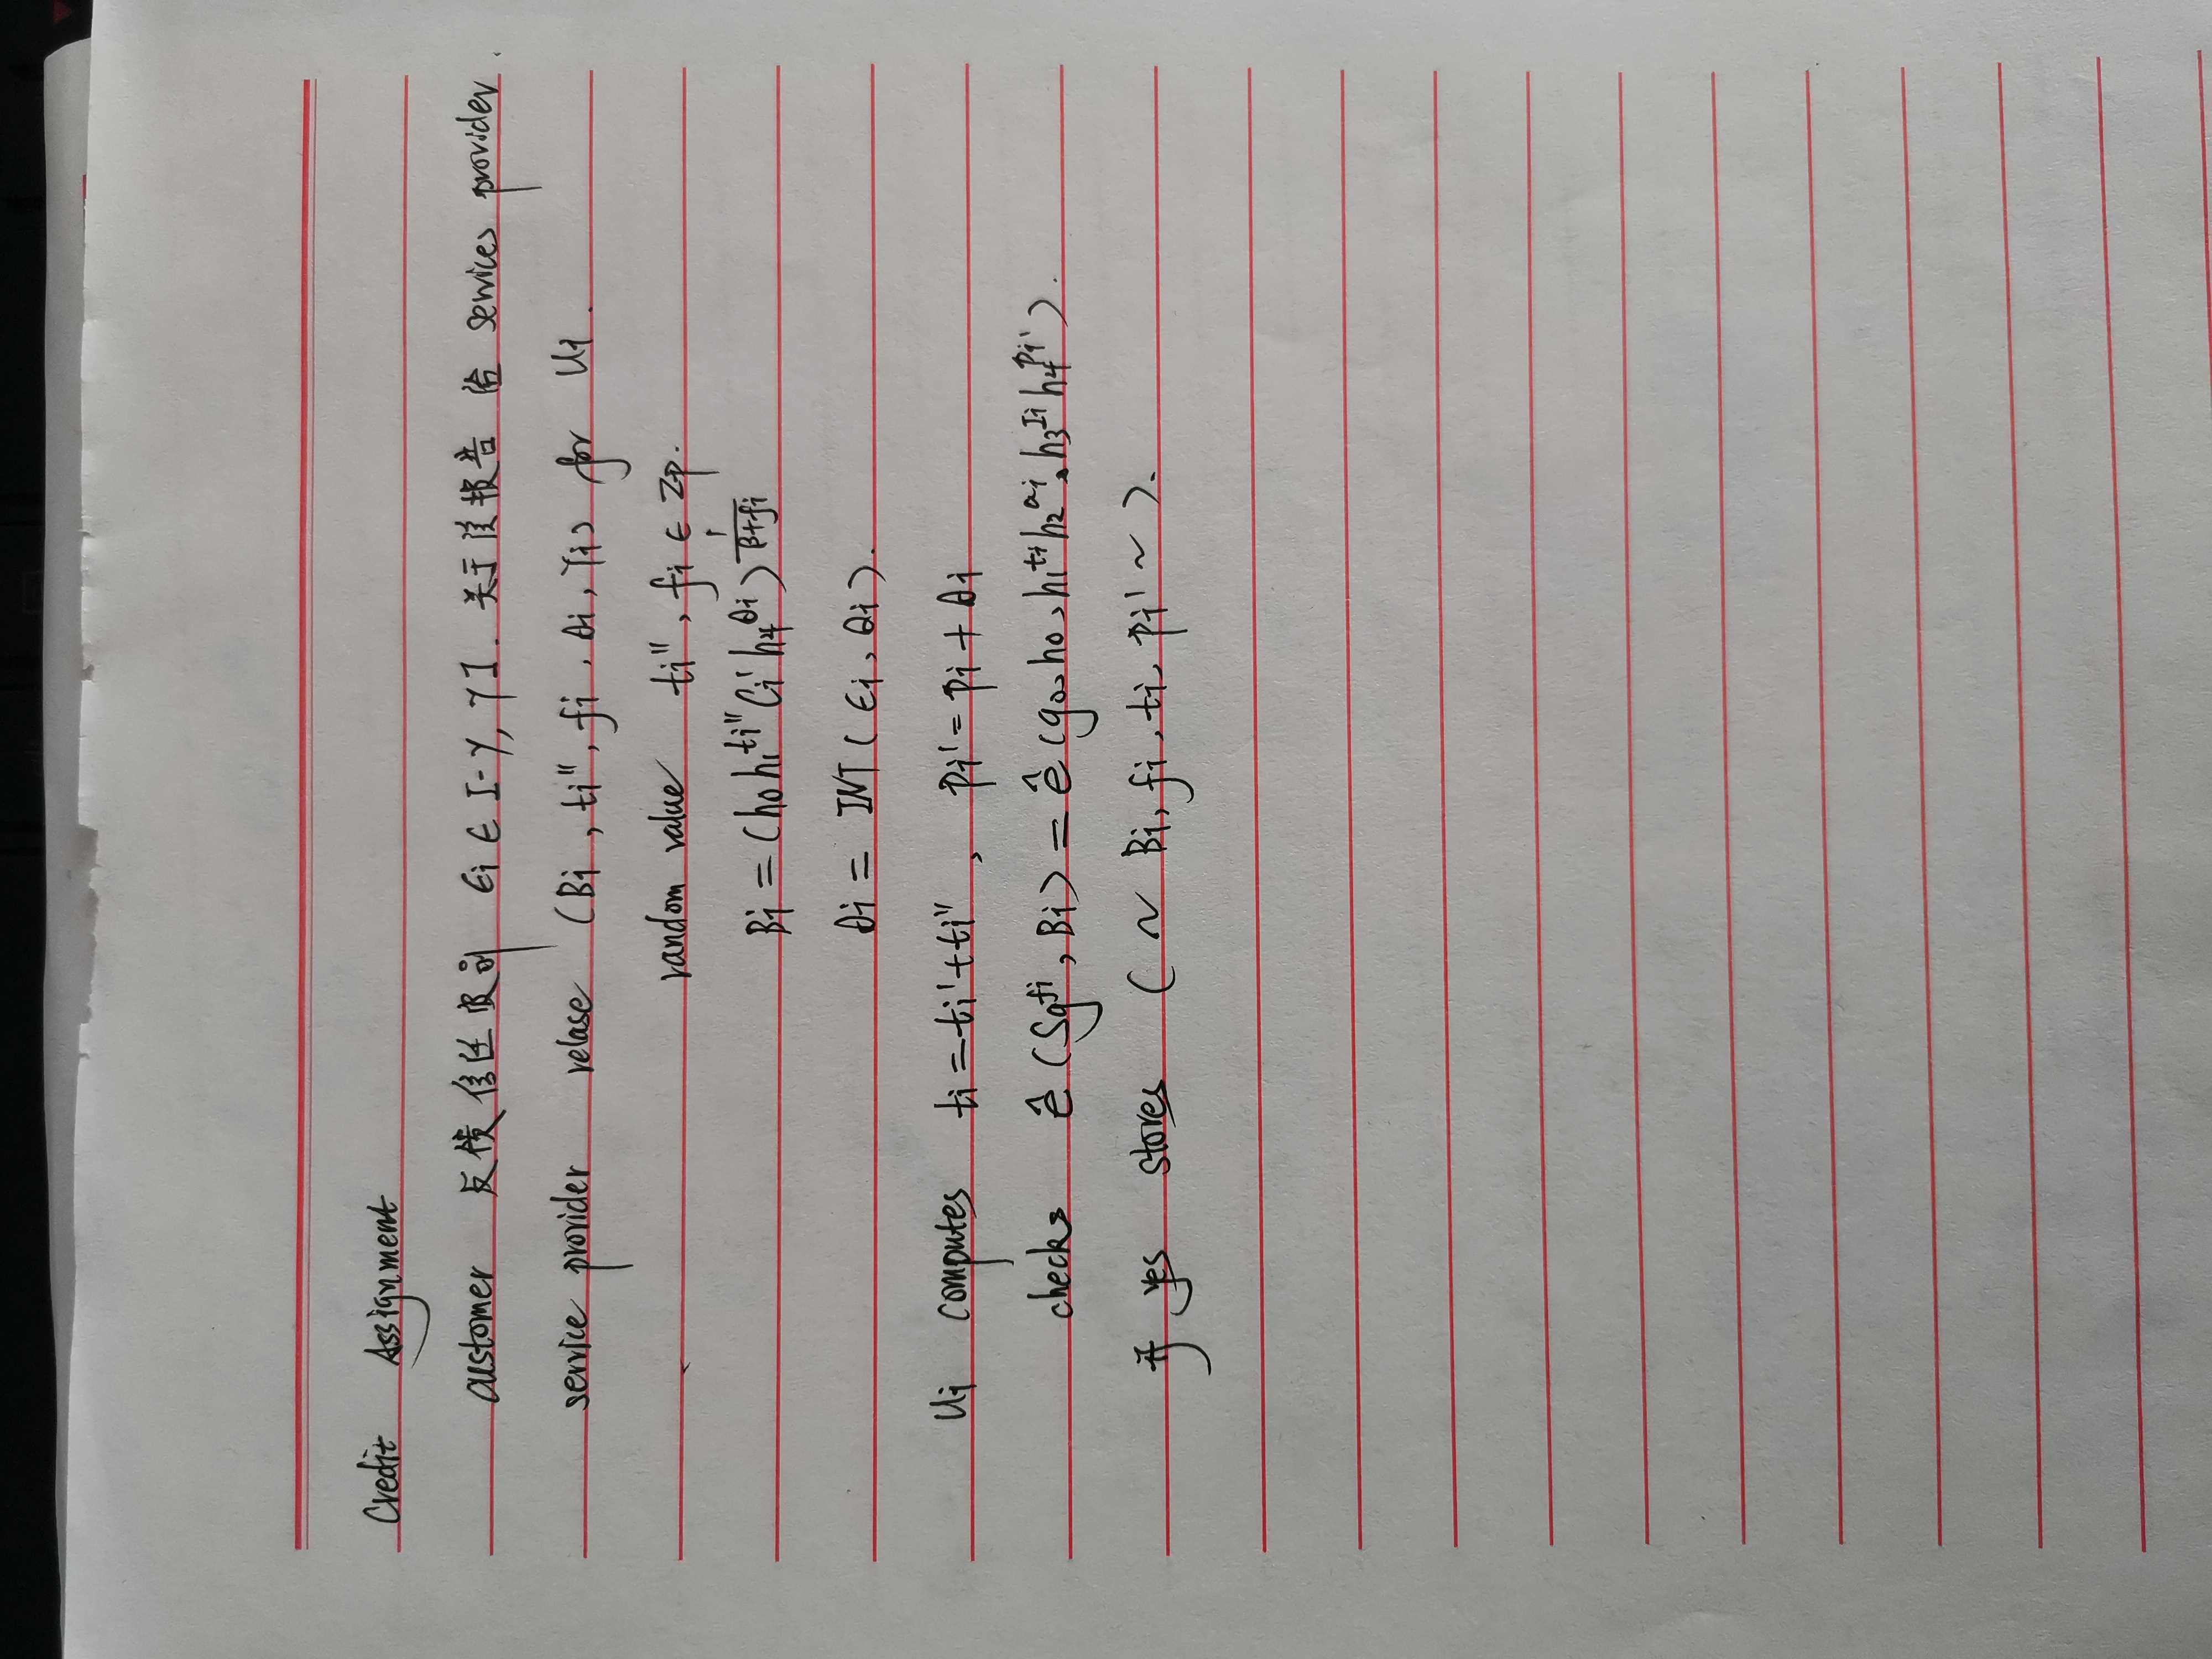 Credit Assignment
customer 反馈信任度 ϵi ∈ [-γ, γ]. 关于该报告 给 services provider.
service provider relase (Bi, ti'', fi, θi, γi) for Ui.
random value ti'', fi ∈ Zp.
Bi = (h0 h1^ti'' Ci' h4^θi)^(1/(β+fi))
θi = INT(ϵi, θi).
Ui computes ti = ti' + ti'', pi' = pi + θi
checks ê(Sg^fi, Bi) = ê(g0, h0, h1^ti h2^ai, h3^Ii h4^pi').
if yes stores (~ Bi, fi, ti, pi' ~).